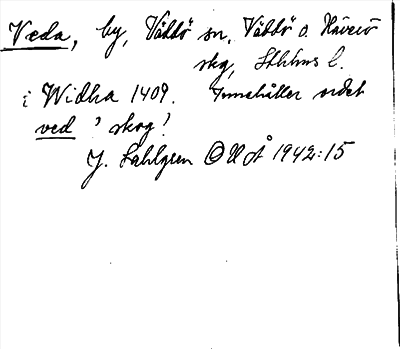 Veda, by, Väddö sn, Väddö o. Häverö
skg, Sthlms l.
i Widha 1409. Innehåller ordet
ved 'skog'!
J. Sahlgren OUÅ 1942:15